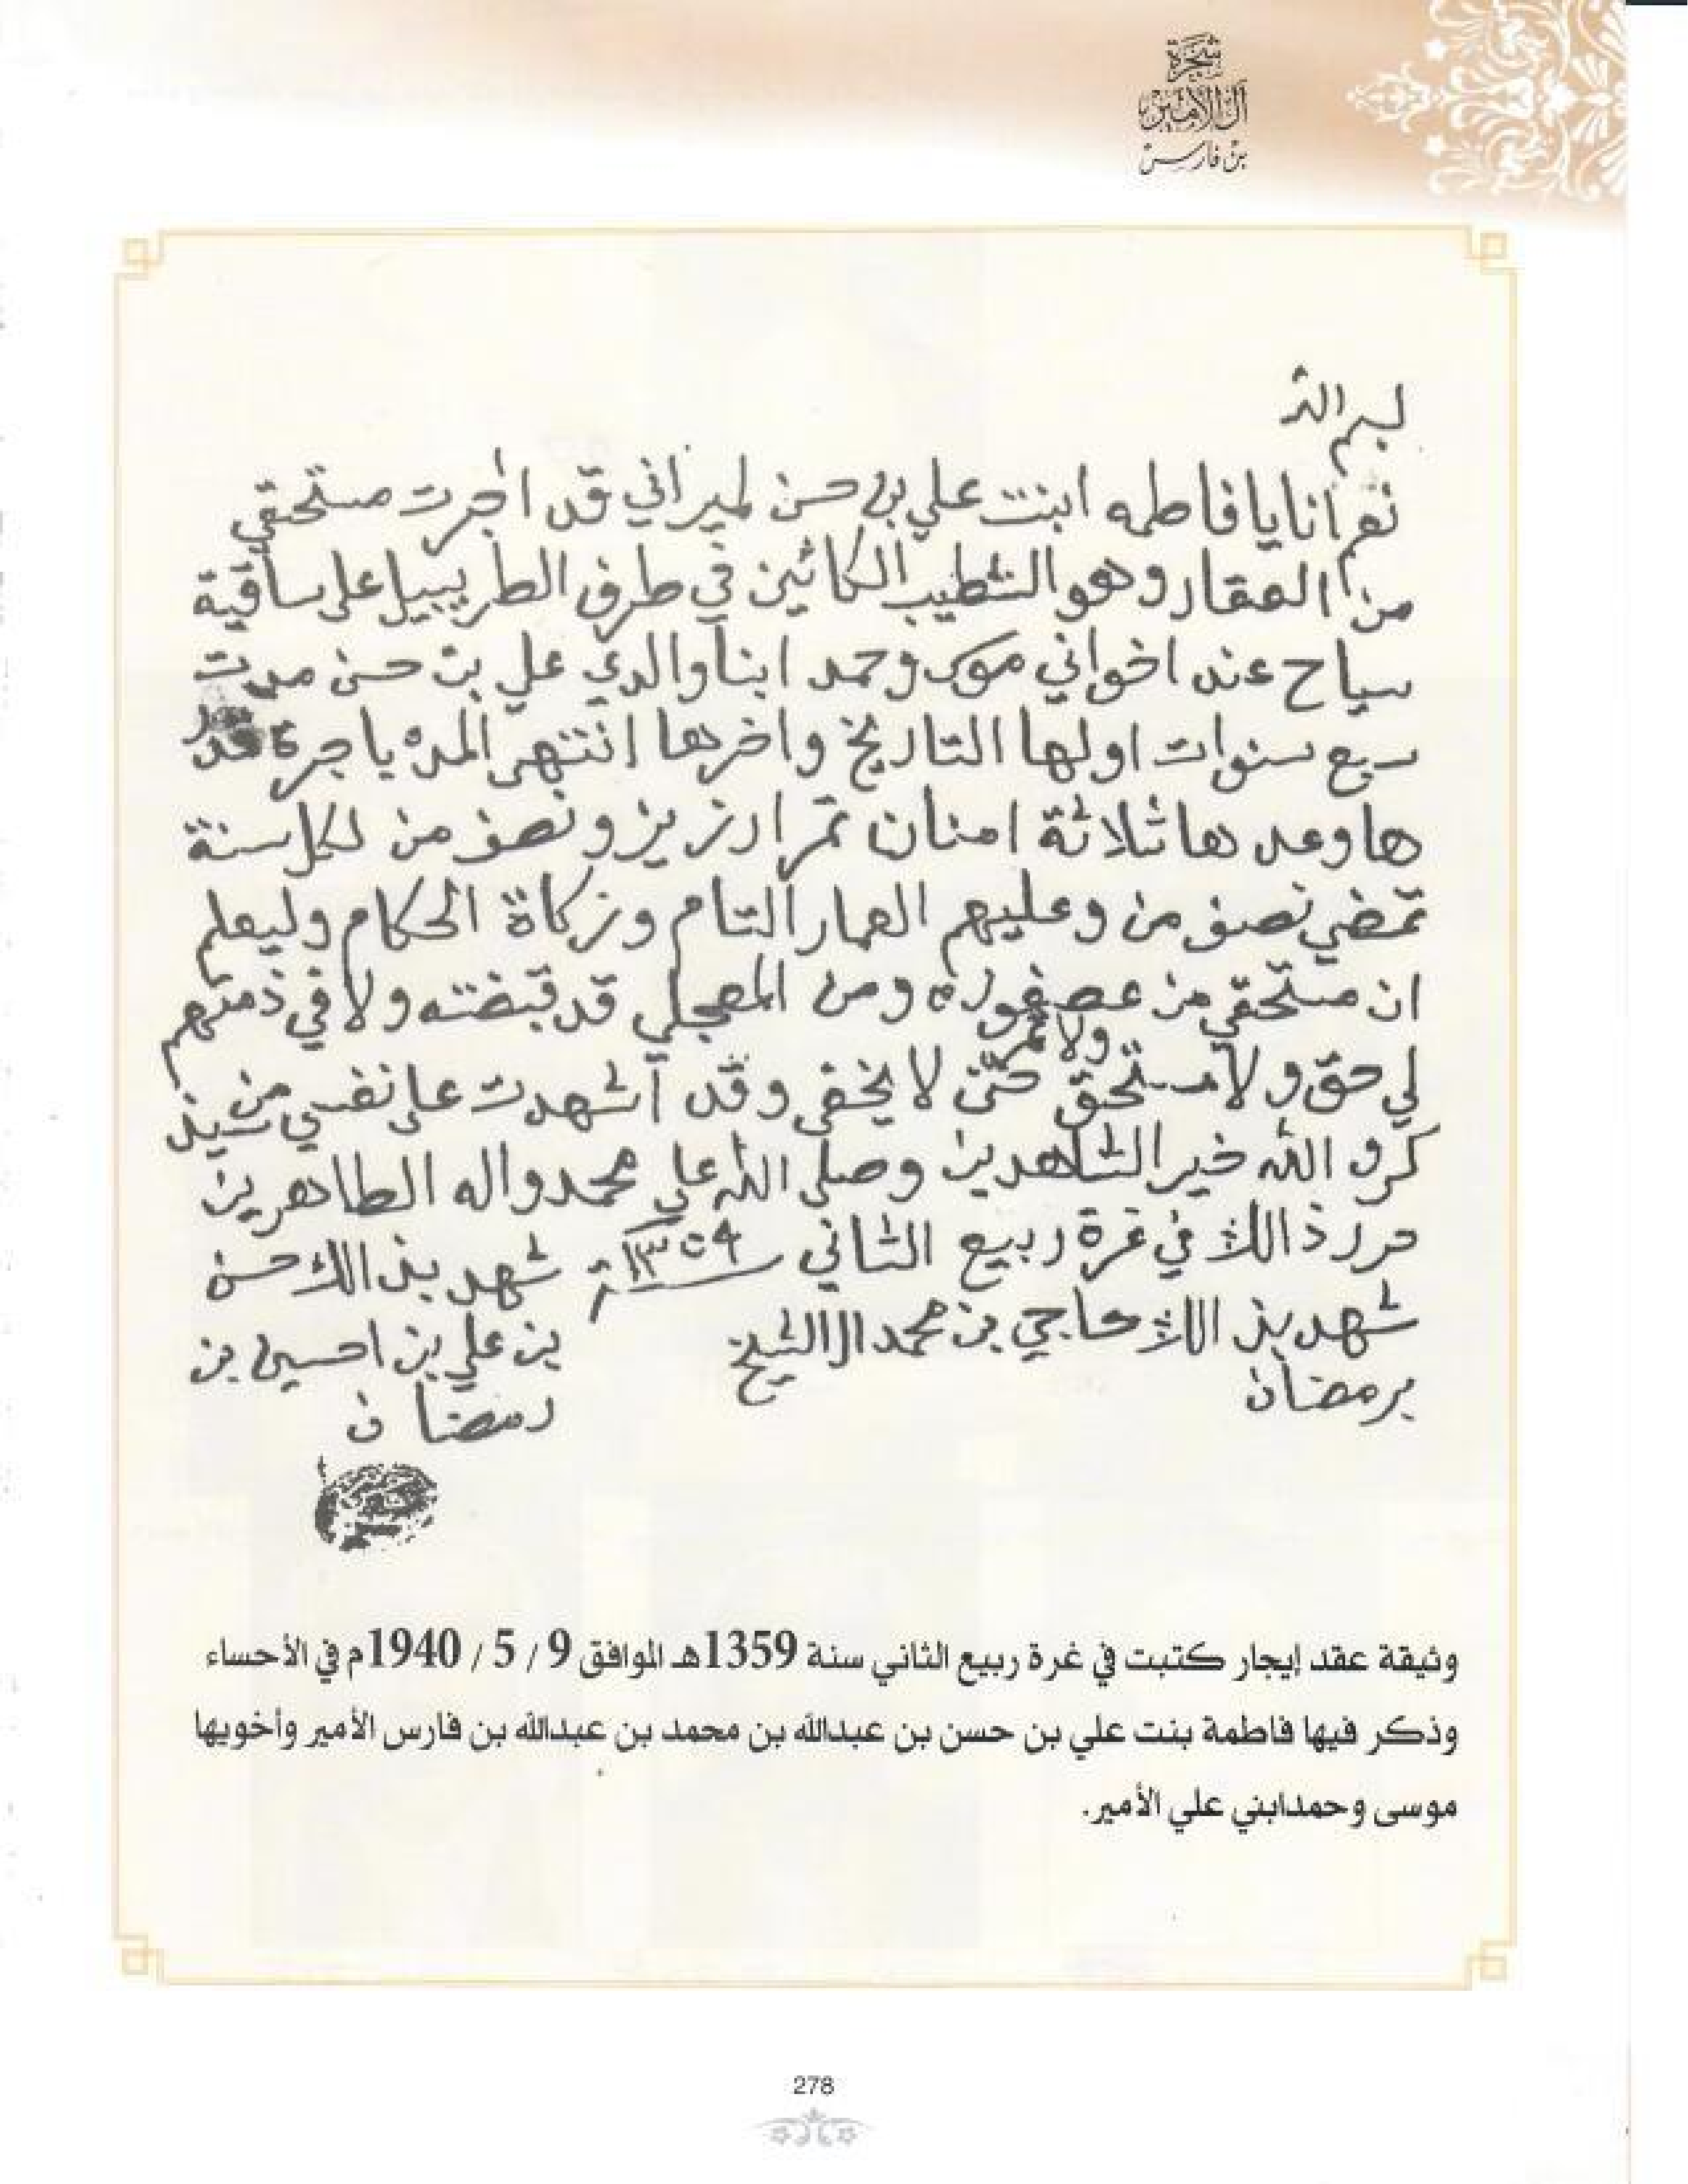 شجرة
آل الأمير
بن فارس
بسم الله
نعم انا يا فاطمه ابنت علي بن حسن لميراني قد اجرت مستحقي
من العقار وهو الشطيب الكائين في طرف الطريبيل على ساقية
سياح عند اخواني موسى وحمد ابنا والدي علي بن حسن مدت
سبع سنوات اولها التاريخ واخرها انتهى المده ياجرة قدر
ها وعدها ثلاثة امنان تمر ارزيز ونصف من لكل سنة
تمضي نصف من وعليهم العمار التام وزكاة الحكام وليعلم
ان مستحقي من عصفوره ومن المعجلي قد قبضته ولا في ذمتهم
لي حق ولا مستحق ولا ثمر حتى لا يخفى وقد أشهدت على نفسي من سيذ
كر و الله خير الشاهدين وصلى الله على محمد واله الطاهرين
حرر ذالك في غرة ربيع الثاني سنة ١٣٥٩
شهد بذالك حاجي بن محمد ال الشيخ
برمضان
شهد بذالك حسن
بن علي بن احسين بن
رمضان
وثيقة عقد إيجار كتبت في غرة ربيع الثاني سنة 1359هـ الموافق 9 / 5 / 1940م في الأحساء
وذكر فيها فاطمة بنت علي بن حسن بن عبدالله بن محمد بن عبدالله بن فارس الأمير وأخويها
موسى وحمدابني علي الأمير.
278